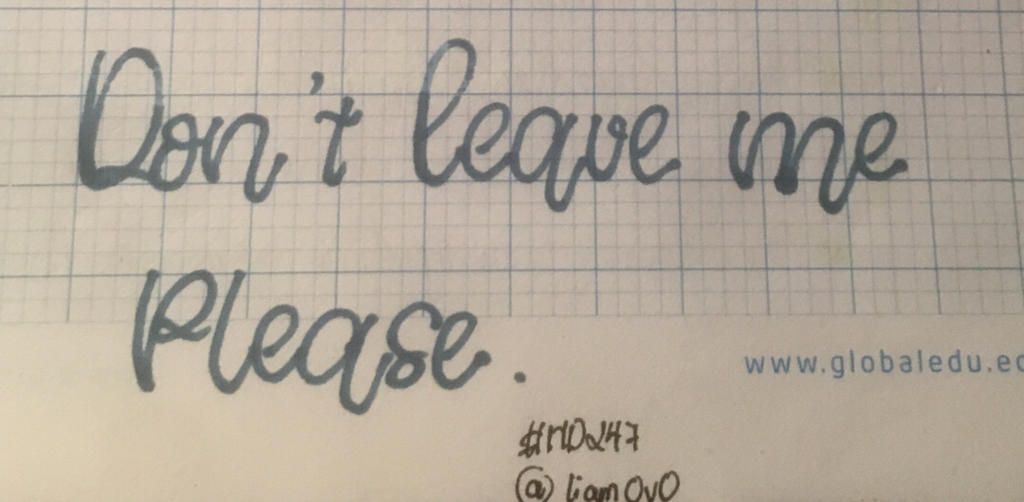 Don't leave me
Please.
www.globaledu.ec
#MD247
@liam0v0